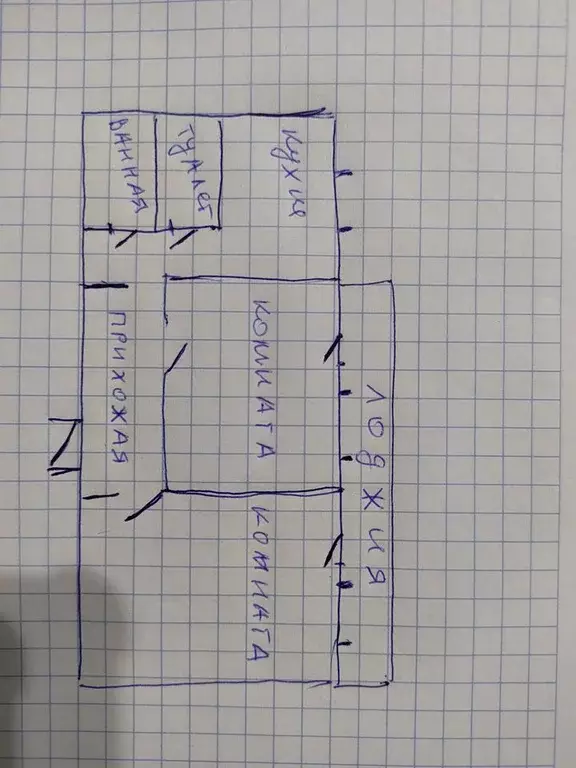 ВАННАЯ
ТУАЛЕТ
КУХНЕ
ПРИХОЖАЯ
КОМНАТА
КОМНАТА
ЛОДЖИЯ